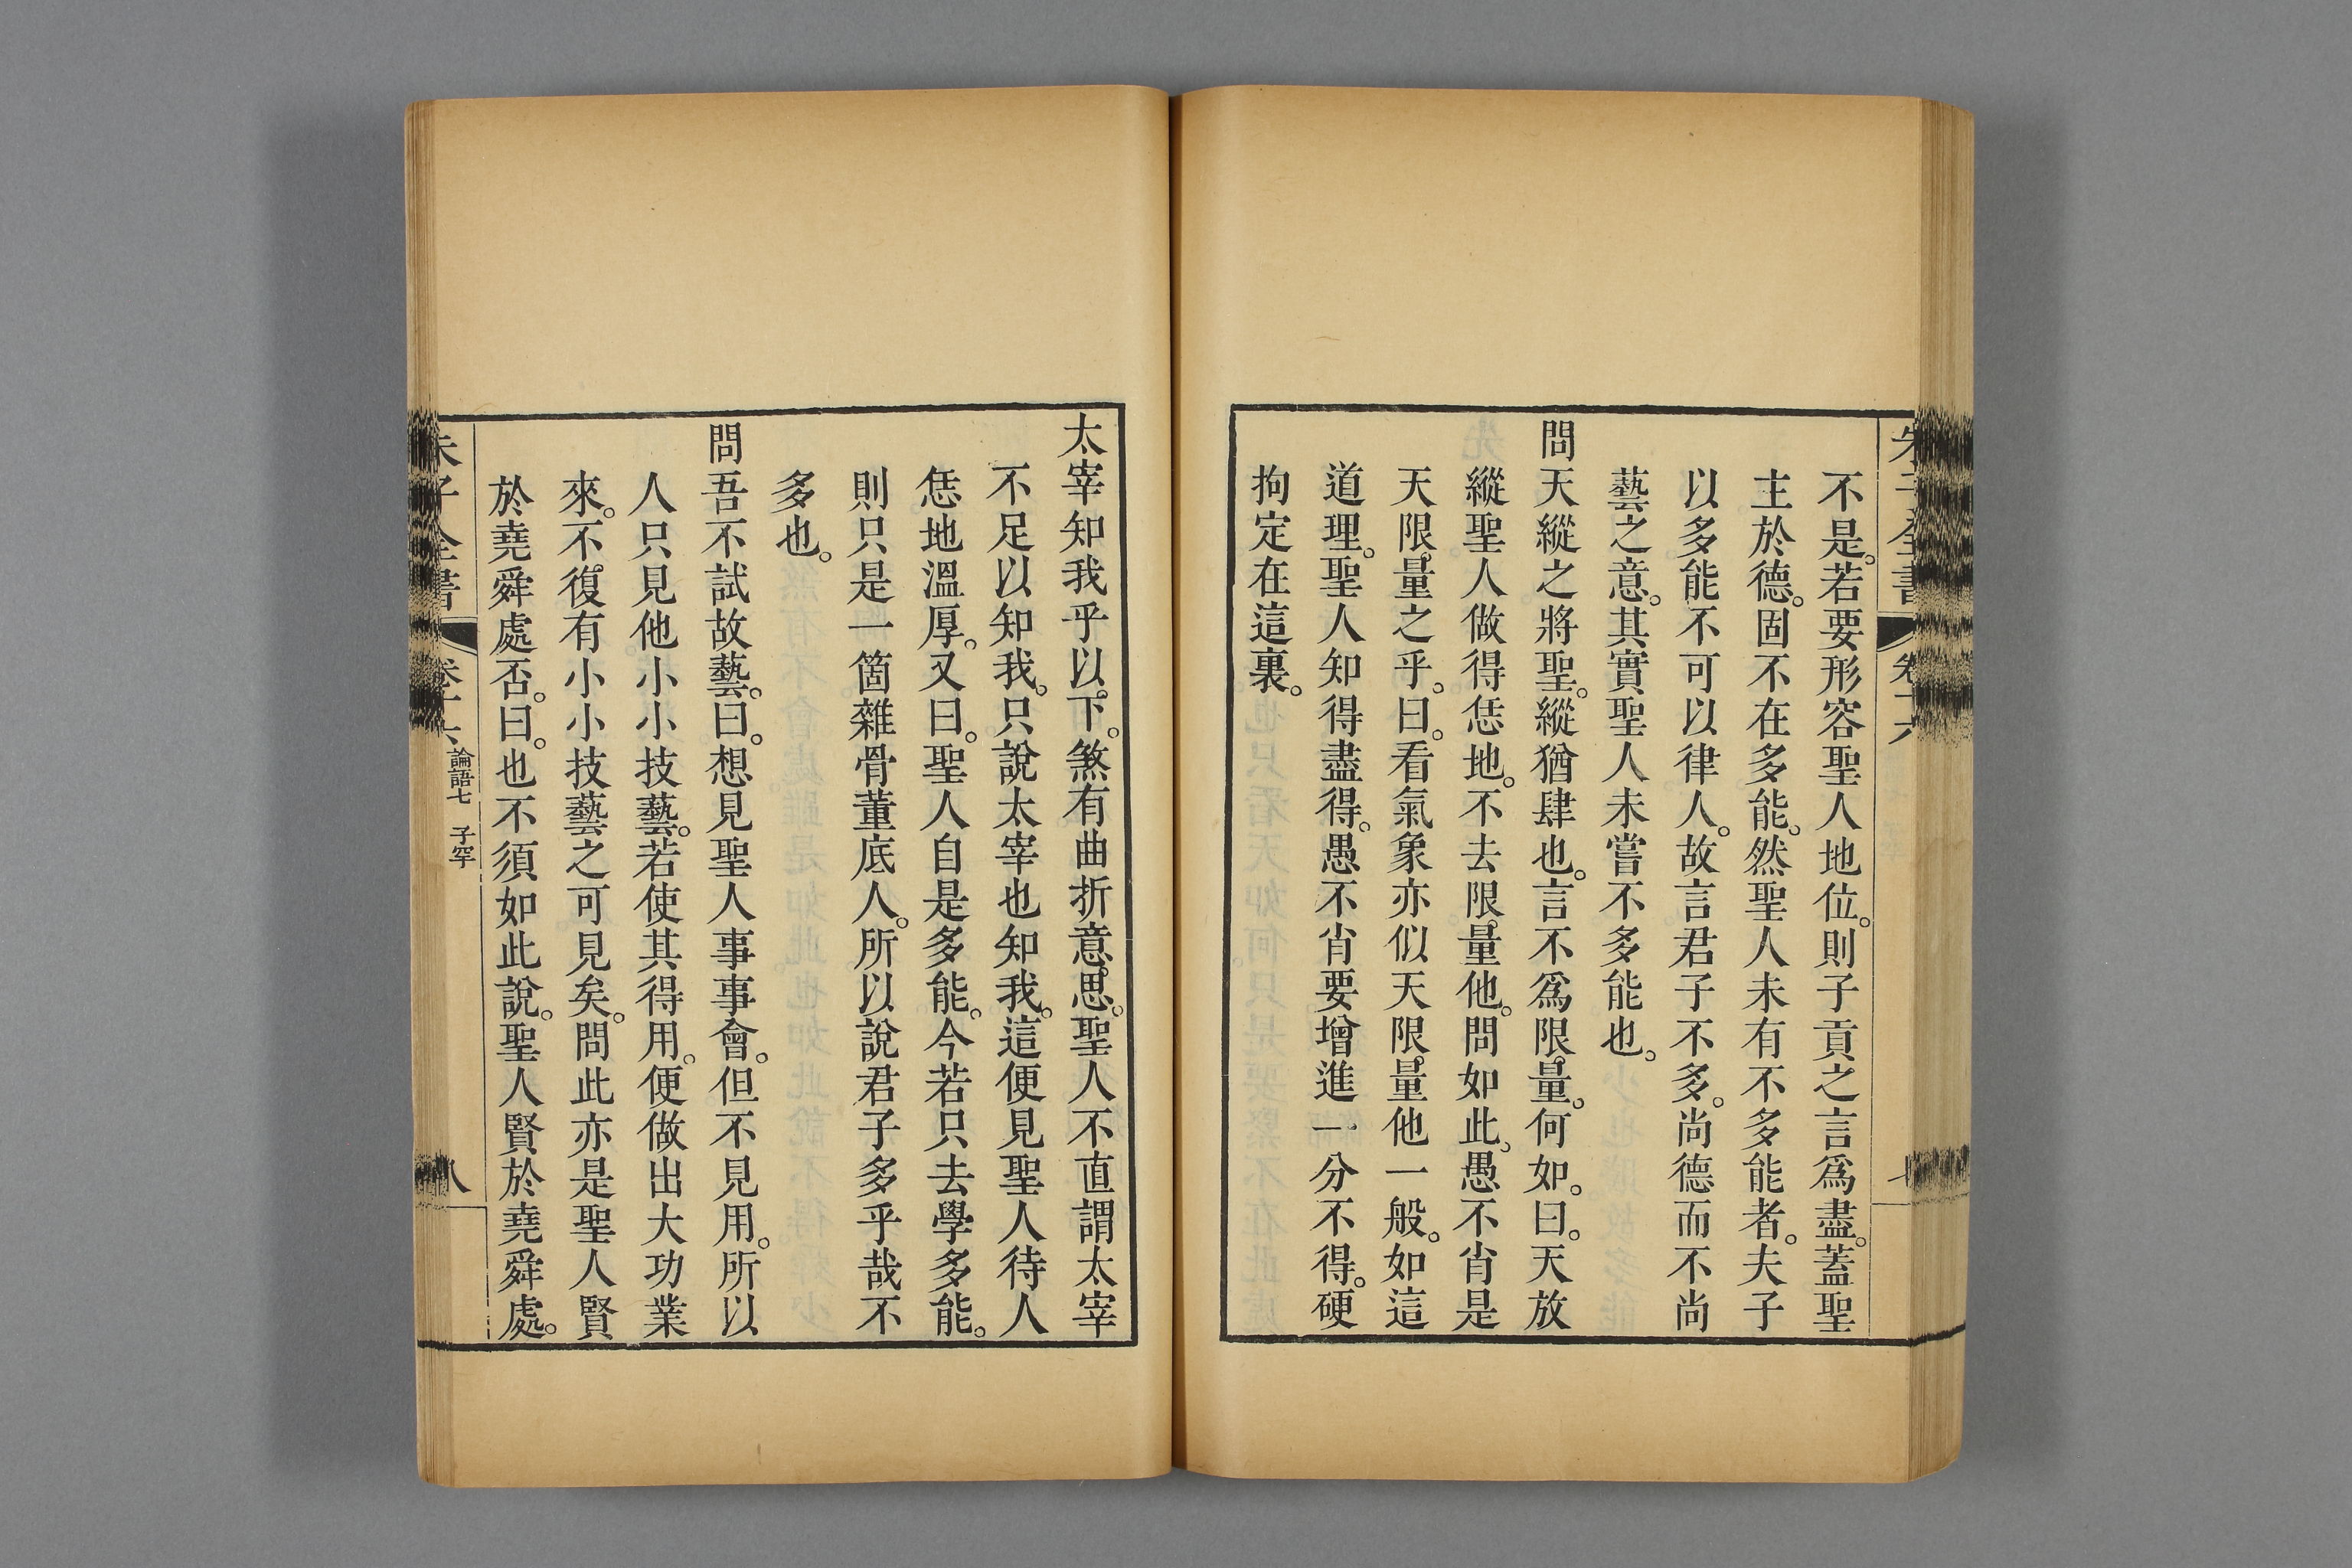 不是。若要形容聖人地位。則子貢之言爲盡。蓋聖
主於德。固不在多能。然聖人未有不多能者。夫子
以多能不可以律人。故言君子不多。尚德而不尚
藝之意。其實聖人未嘗不多能也。
問天縱之將聖。縱猶肆也。言不爲限量。何如。曰。天放
縱聖人做得恁地。不去限量他。問如此。愚不肖是
天限量之乎。曰。看氣象亦似天限量他一般。如這
道理。聖人知得盡得。愚不肖要增進一分不得。硬
拘定在這裏。
太宰知我乎以下。煞有曲折意思。聖人不直謂太宰
不足以知我。只說太宰也知我。這便見聖人待人
恁地溫厚。又曰。聖人自是多能。今若只去學多能。
則只是一箇雜骨董底人。所以說君子多乎哉不
多也。
問吾不試故藝。曰。想見聖人事事會。但不見用。所以
人只見他小小技藝。若使其得用。便做出大功業
來。不復有小小技藝之可見矣。問此亦是聖人賢
於堯舜處否。曰。也不須如此說。聖人賢於堯舜處。
朱子全書 卷十六 論語七 子罕 八